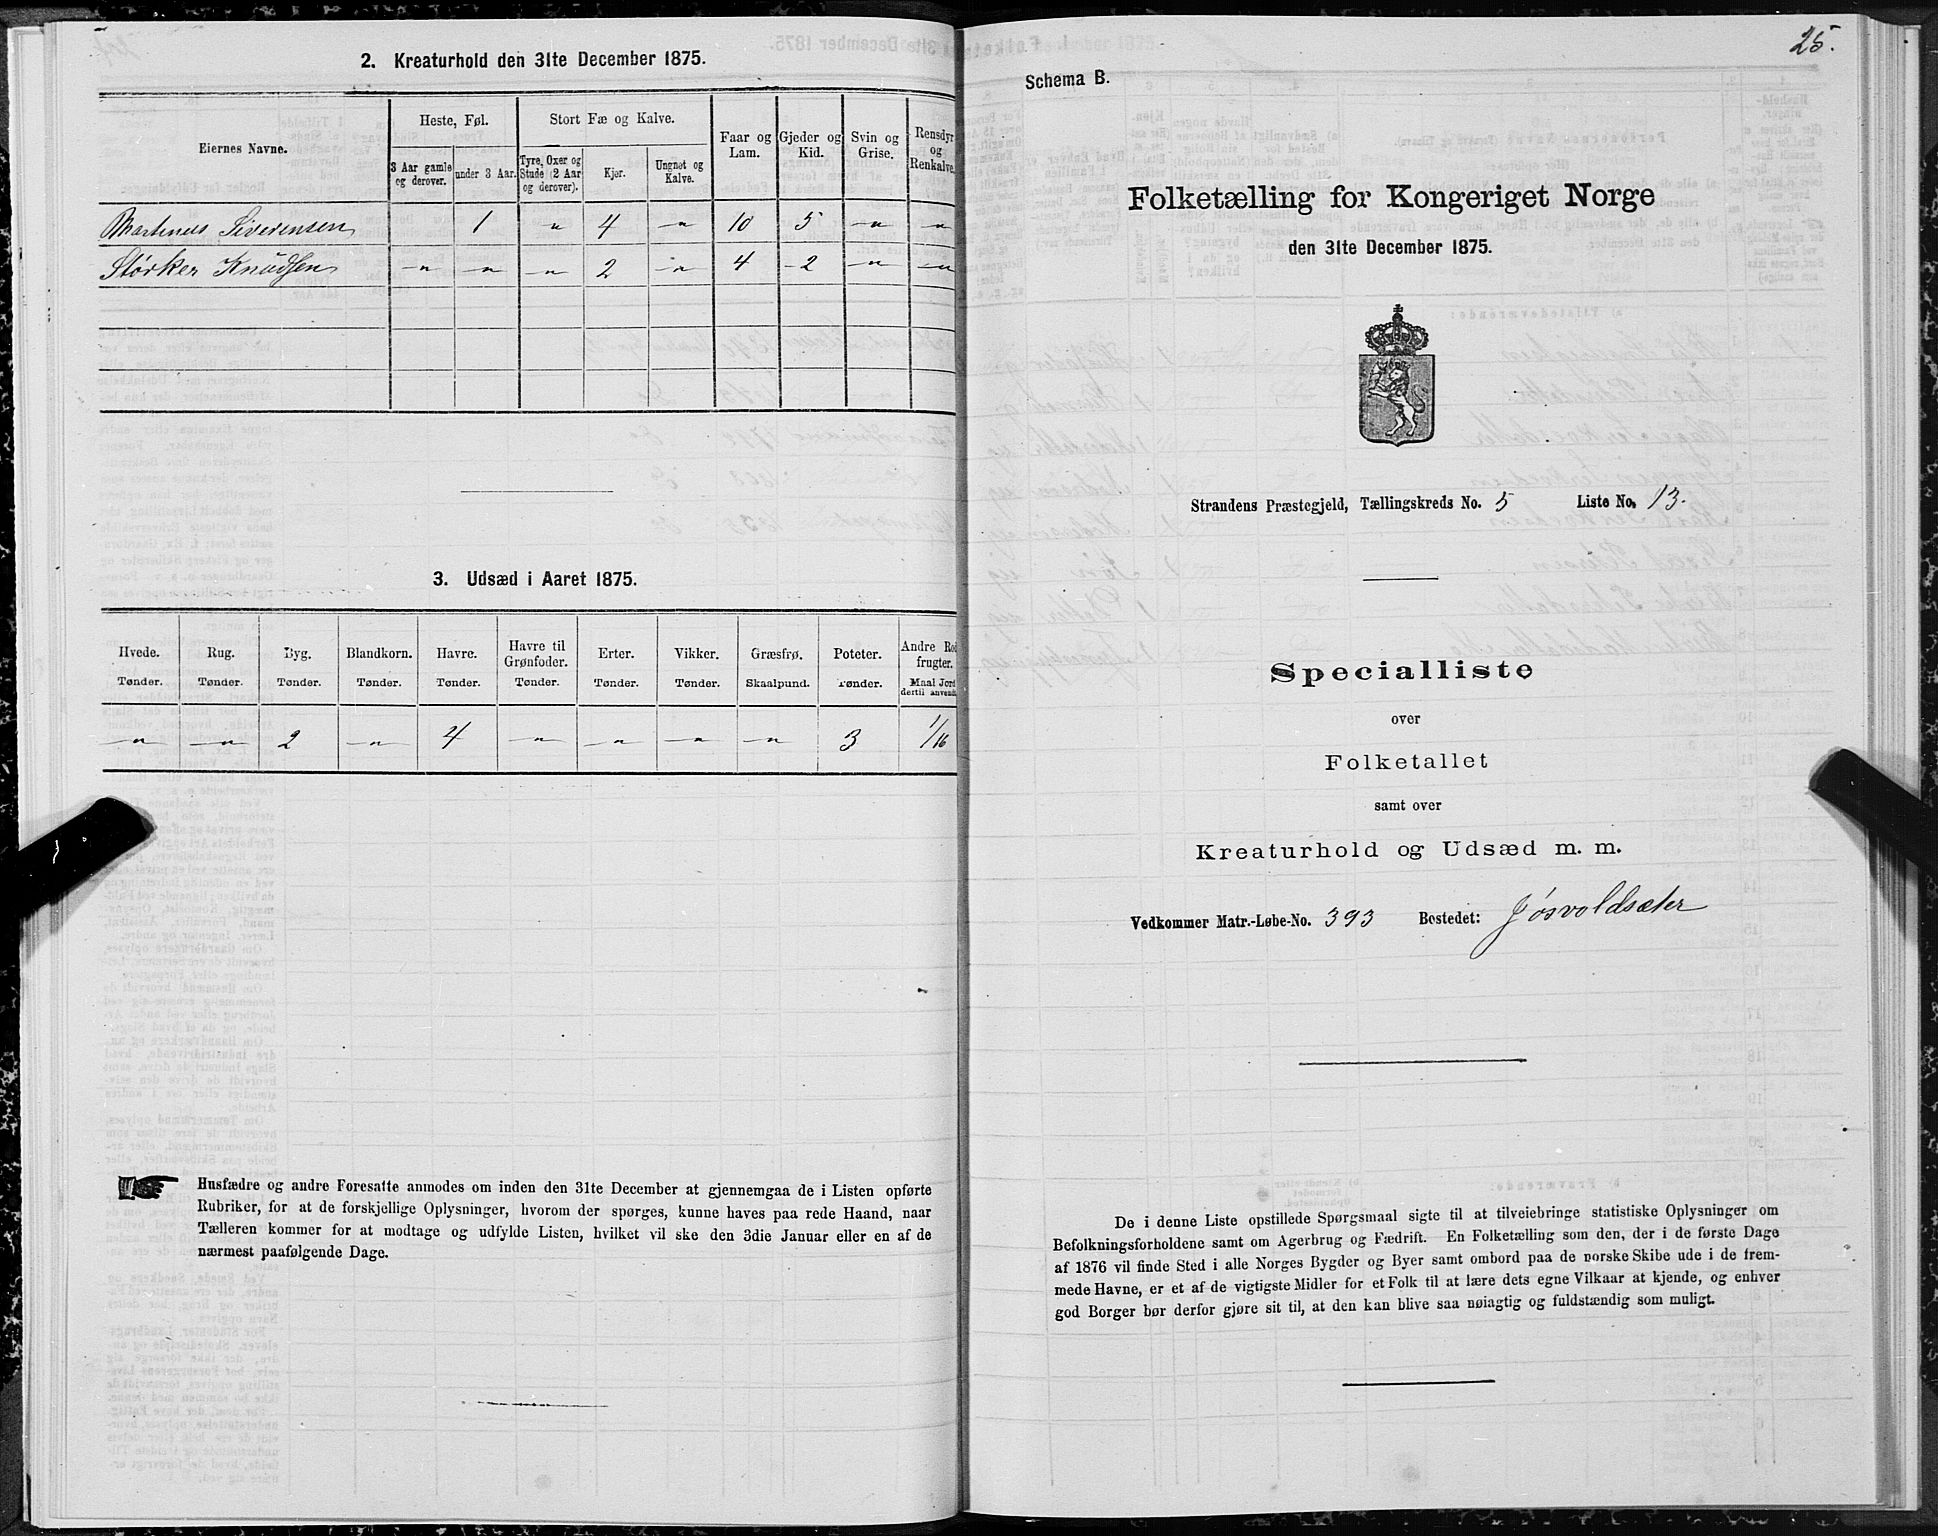 2. Kreaturhold den 31te December 1875.
Eiernes Navne.
Heste, Føl.
Stort Fæ og Kalve.
Faar og Lam.
Gjeder og Kid.
Svin og Grise.
Rensdyr og Renkalve.
3 Aar gamle og derover.
under 3 Aar.
Tyre, Oxer og Stude (2 Aar og derover).
Kjør.
Ungnøt og Kalve.
Martinus Siverensen 1 " 4 " 10 5 " "
Størker Knudsen " " " 2 " 4 2 " "
3. Udsæd i Aaret 1875.
Hvede. Rug. Byg. Blandkorn. Havre. Havre til Grønfoder. Erter. Vikker. Græsfrø. Poteter. Andre Rodfrugter.
Tønder. Tønder. Tønder. Tønder. Tønder. Tønder. Tønder. Tønder. Skaalpund. Tønder. Maal Jord dertil anvendt
" " 2 " 4 " " " " 3 1/16
Husfædre og andre Foresatte anmodes om inden den 31te December at gjennemgaa de i Listen opførte
Rubriker, for at de forskjellige Oplysninger, hvorom der spørges, kunne haves paa rede Haand, naar
Tælleren kommer for at modtage og udfylde Listen, hvilket vil ske den 3die Januar eller en af de
nærmest paafølgende Dage.
25.
Schema B.
Folketælling for Kongeriget Norge
den 31te December 1875.
Strandens Præstegjeld, Tællingskreds No. 5 Liste No. 13.
Specialliste
over
Folketallet
samt over
Kreaturhold og Udsæd m. m.
Vedkommer Matr.-Løbe-No. 393 Bostedet: Jøsvoldsæter
De i denne Liste opstillede Spørgsmaal sigte til at tilveiebringe statistiske Oplysninger om
Befolkningsforholdene samt om Agerbrug og Fædrift. En Folketælling som den, der i de første Dage
af 1876 vil finde Sted i alle Norges Bygder og Byer samt ombord paa de norske Skibe ude i de frem-
mede Havne, er et af de vigtigste Midler for et Folk til at lære dets egne Vilkaar at kjende, og enhver
god Borger bør derfor gjøre sit til, at den kan blive saa nøiagtig og fuldstændig som muligt.